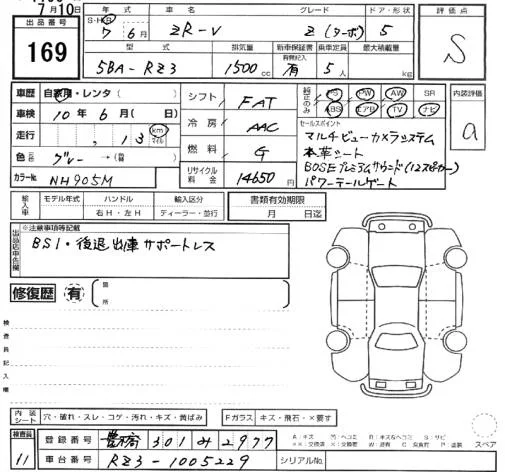 月10日
出品番号
169
年式
S・H・R
7年6月
車名
ZR-V
グレード
Z (ターボ)
ドア・形状
5
評価点
S
型式
5BA-RZ3
排気量
1500cc
新車保証書
有
乗車定員
5人
最大積載量
kg
車歴 自家用・レンタ ( )
車検 10年6月( 日)
走行 , 13 km マイル
色 グレー→(替)
カラーNo NH905M
シフト FAT
冷房 AAC
燃料 G
リサイクル料金 14650
純正のみ
PS PW AW SR
ABS エアB TV ナビ
内装評価
a
セールスポイント
マルチビューカメラシステム
本革シート
BOSEプレミアムサウンド(12スピーカー)
パワーテールゲート
輸入車
モデル年式
ハンドル
右H・左H
輸入区分
ディーラー・並行
書類有効期限
月 日迄
出品店申告欄
※注意事項等記載
BSI・後退出庫サポートレス
修復歴 有 箇所
検査員記入欄
内装シート 穴・破れ・スレ・コゲ・汚れ・キズ・黄ばみ
Fガラス キズ・飛石・×要す
検査員
11
登録番号 301 み 2977
車台番号 RZ3-1005229
シリアルNo.
A:キズ M:ヘコミ R:キズ&ヘコミ S:サビ
××:交換済 ×:交換要 W:補修 C:腐食 P:塗装
スペア